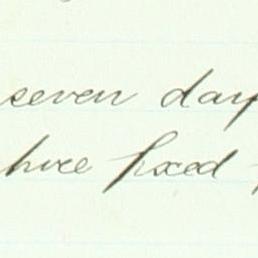 seven day
hree fixed